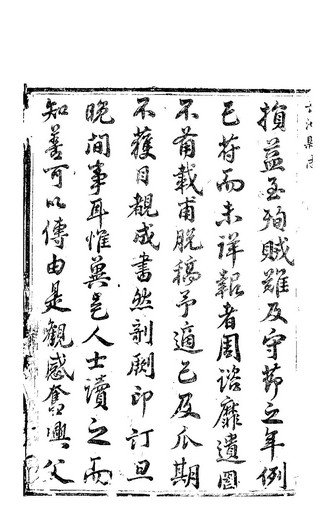 損益至殉賊難及守節之年例
已符而未詳報者周諮靡遺閱
不兩載甫脫稿予適已及瓜期
不獲目覩成書然剞劂印訂旦
晚間事耳惟冀邑人士讀之而
知善可以傳由是觀感奮興父